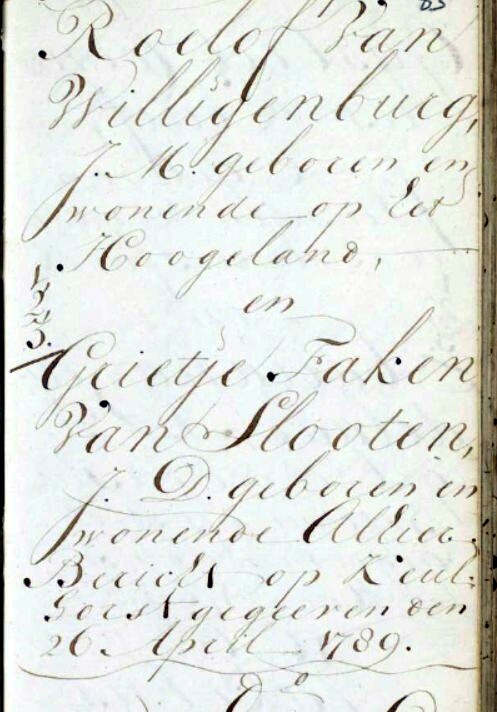 Roelof Van
Willigenburg,
J. M. geboren en
wonende op het
Hoogeland,
en
1
2
3.
Grietje Faken
Van Slooten,
J. D. geboren en
wonende Alhier.
Bericht op Zeul-
horst gegeeven den
26 April 1789.